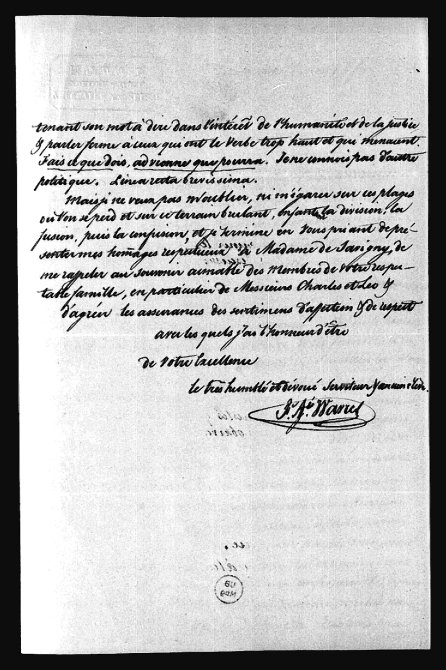 tenant son mot à dire dans l'intérêt de l'humanité et de la justice
& parler ferme à ceux qui ont le verbe trop haut et qui menacent.
Fais ce que dois, advienne que pourra. Je ne connois pas d'autre
politique. Linea recta brevissima.
Mais je ne veux pas m'oublier, ni m'égarer sur ces plages
où l'on se perd et sur ce terrain brulant, enfante la division, la
fusion, puis la confusion, et je termine en Vous priant de pré-
senter mes homages respectueux à Madame de Savigny, de
me rapeler au souvenir aimable des membres de votre respec-
table famille, en particulier de Messieurs Charles et Leo &
d'agréer les assurances des sentimens d'affection & de respect
avec les quels j'ai l'honneur d'être
de Votre Excellence
le très humble et dévoué Serviteur & ancien
UB
MBG